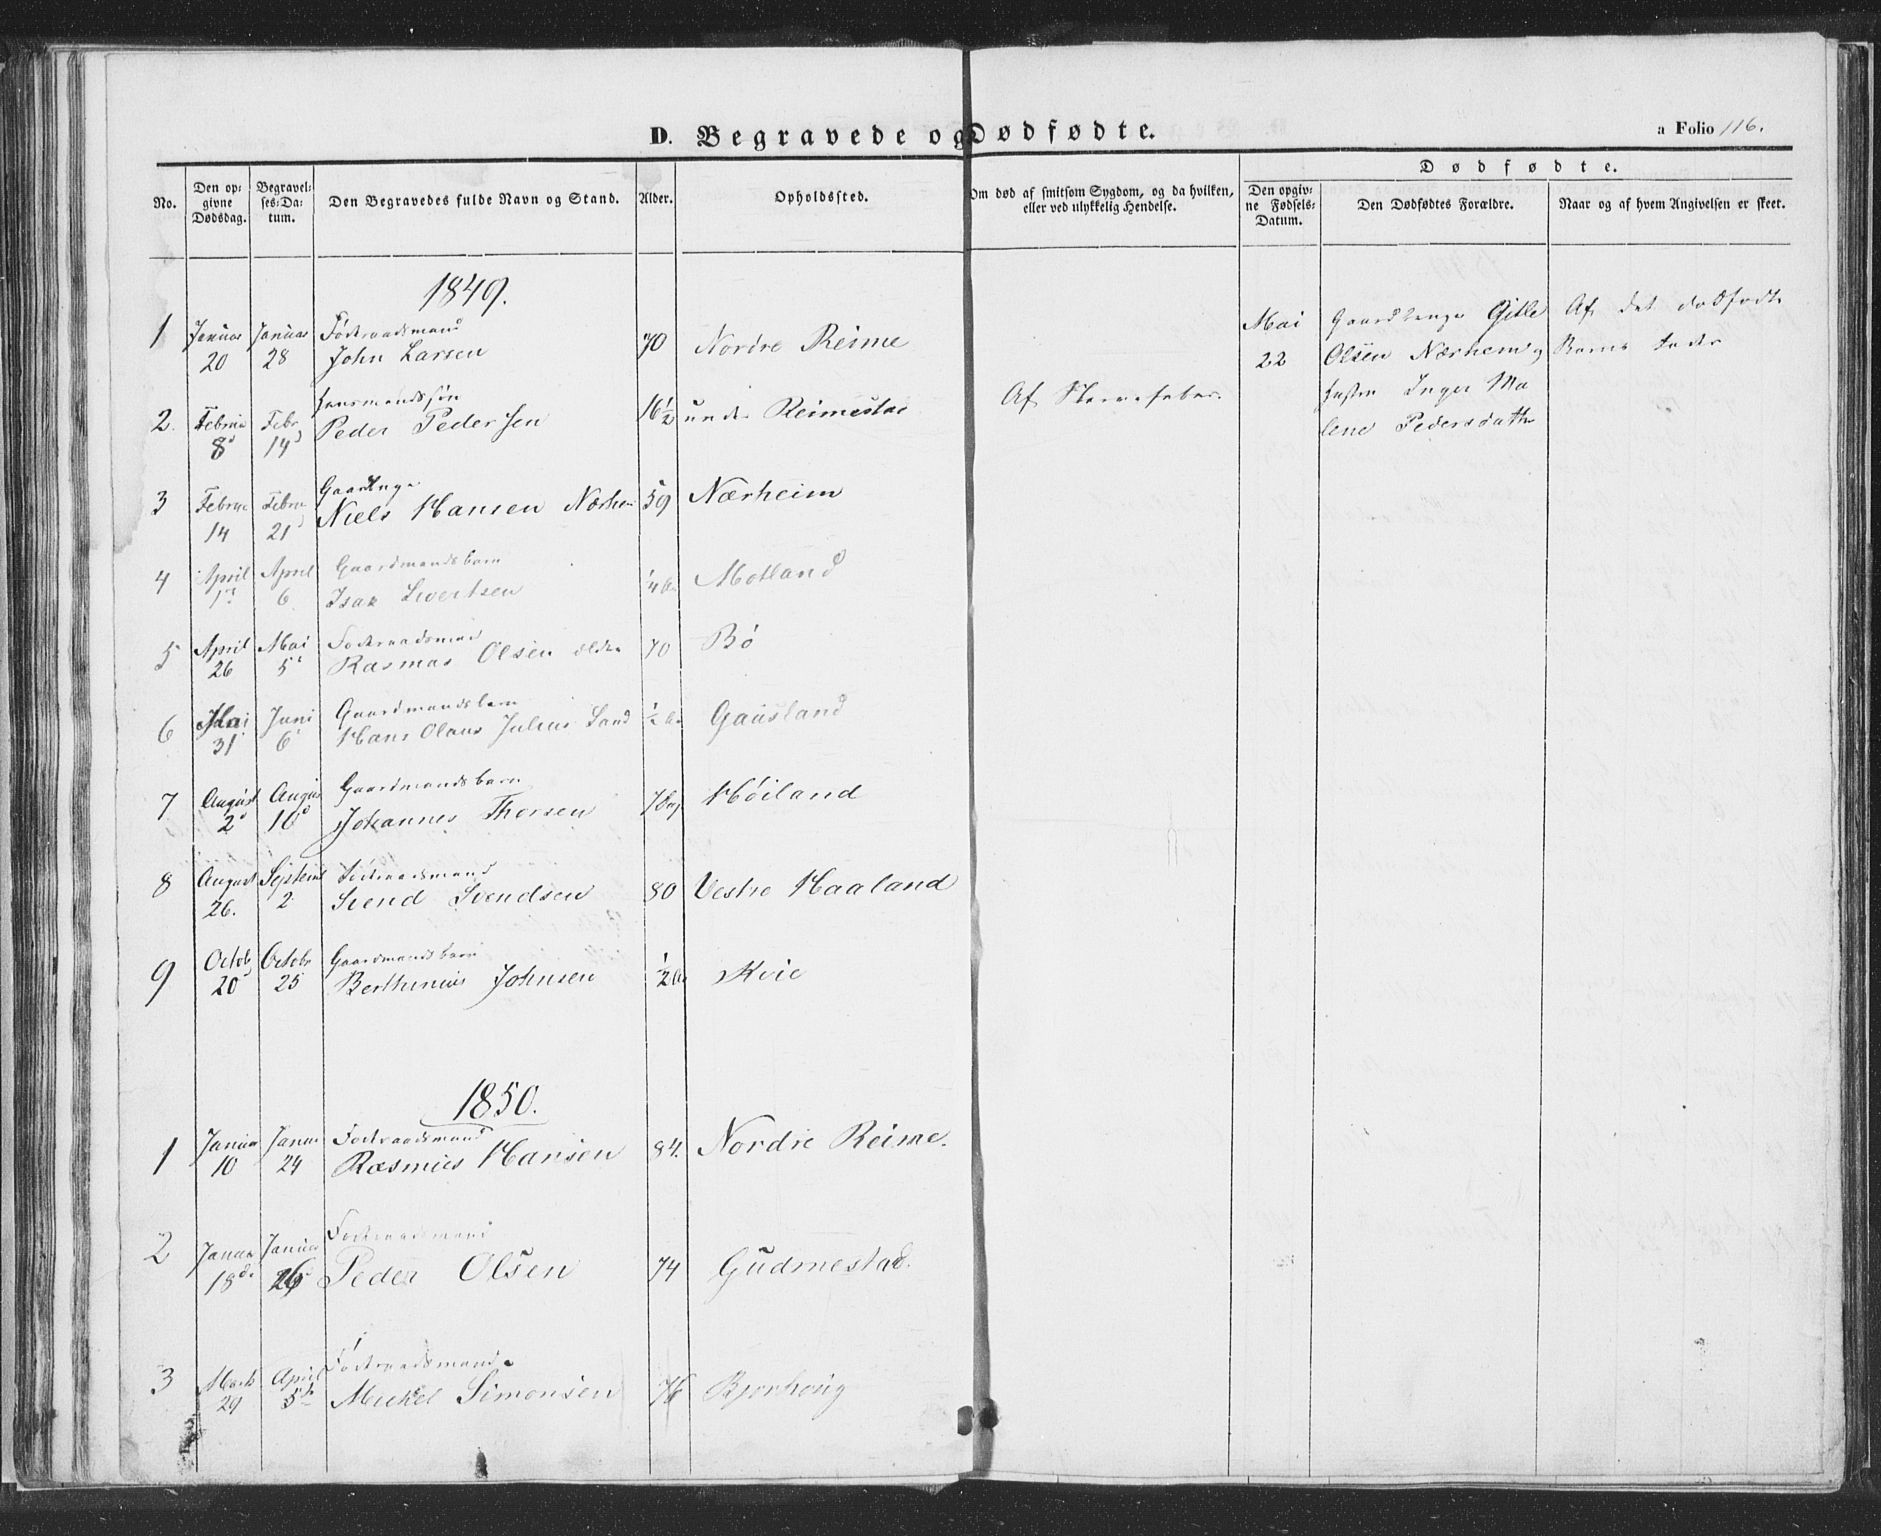 D. Begravede og Dødfødte.
a Folio 116.
No.
Den opgivne Dødsdag.
Begravelses-Datum.
Den Begravedes fulde Navn og Stand.
Alder.
Opholdssted.
Om død af smitsom Sygdom, og da hvilken, eller ved ulykkelig Hendelse.
Dødfødte.
Den opgivne Fødsels-Datum.
Den Dødfødtes Forældre.
Naar og af hvem Angivelsen er skeet.
1849.
1 Januar 20 Januar 28 Føderaadsmand John Larsen 70 Nordre Reime
Mai 22
Olsen Nærheim
Inger Malene Pedersdatter
Af det dødfødte Barns Fader
2. Februar 8 Febr 14 Huusmandssøn Peder Pedersen 16 1/2 under Reimestad Af Nervefeber.
3 Februar 14 Februar 21 Niels Hansen Nærheim 59 Nærheim
4 April 1 April 6 Gaardmandsbarn Isak Sivertsen 1/4 Motland
5 April 26 Mai 5 Føderaadsmand Rasmus Olsen ældre 70 Bø
6 Mai 31 Juni 6 Gaardmandsbarn Hans Olaus Julius Land 1/2 Gausland
7 August 2 August 10 Gaardmandsbarn Johannes Thorsen 7 Høiland
8 August 26. Septemb 2 Føderaadsmand Svend Svendsen 80 Vestre Haaland
9 Octob 20 Octobr 25 Gaardmandsbarn Berthinius Johnsen 1/2 Kvie
1850.
1 Januar 10 Januar 24 Føderaadsmand Rasmus Hansen 84. Nordre Reime.
2 Januar 18 Januar 26 Føderaadsmand Peder Olsen 74 Gudmestad.
3 Marts 29 April 5 Føderaadsmand Mickel Simonsen 76 Bjorhoug